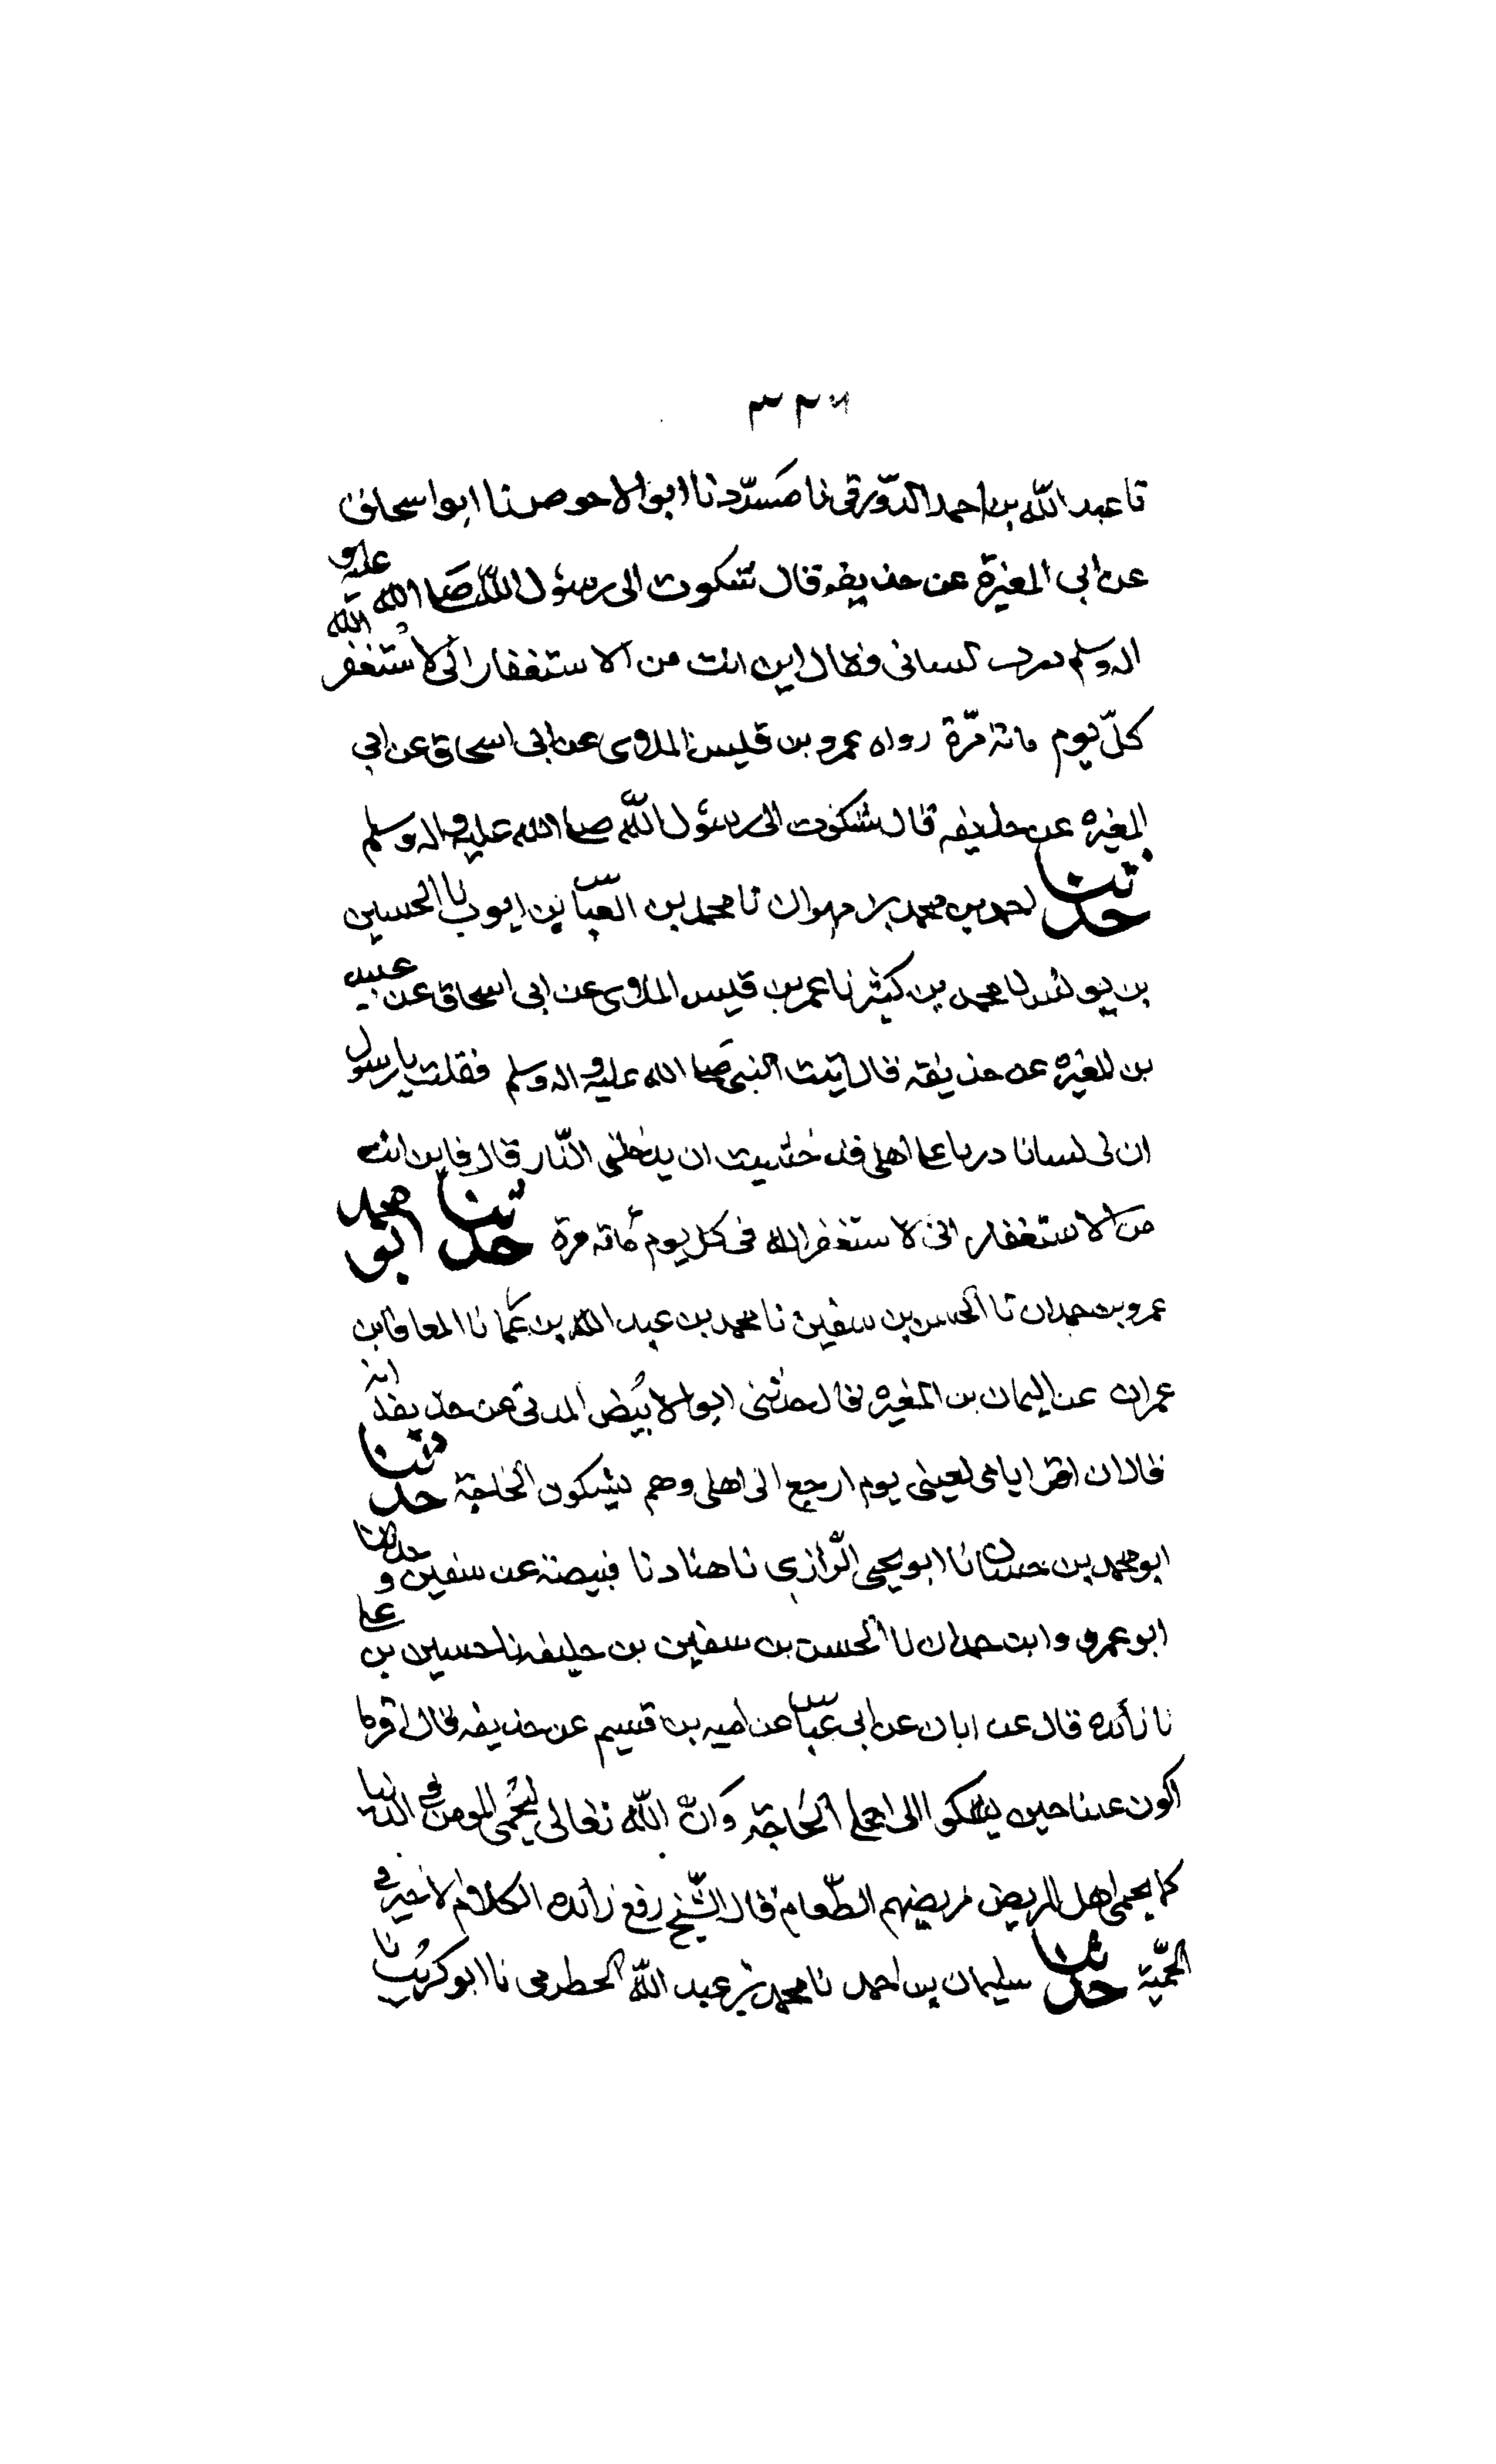 ٣٢٦
نا عبد الله بن احمد الدّورقى نا مسدّد نا ابو الاحوص نا ابو اسحاق
عن ابى المغيرة عن حذيفه قال شكوت الى رسول اللّه صلى الله عليه و
اله وسلم ذرب لسانى فقال اين انت من الاستغفار انى لاستغفر الله
كلّ يوم مائة مرّة رواه عمرو بن قيس الملاوى عن ابى اسحاق عن ابى
المغيره عن حذيفه قال شكوت الى رسول اللّه صلى الله عليه و اله وسلم
حدثنا احمد بن محمد بن مهران نا محمد بن العبّاس بن ايوب نا الحسين
بن يونس نا محمد بن كثير نا عمر بن قيس الملاوى عن ابى اسحاق عن عبيد
بن المغيره عن حذيفه قال اتيت النبى صلى الله عليه و اله وسلم فقلت يا رسول
ان لى لسانا دربا على اهلى قد خشيت ان يدخلنى النّار قال فاين انت
من الاستغفار انى لاستغفر الله فى كل يوم مائه مرة حدثنا محمد ابو
عمرو بن حمدان نا الحسن بن سفين نا محمد بن عبد الله بن عمار نا المعافا بن
عمران عن اليمان بن المغيره قال حدثنى ابو الابيض المدنى عن حذيفه انه
قال ان اقر ايامى لعينى يوم ارجع الى اهلى وهم يشكون الحاجة حدثنا
ابو محمد بن حسان نا ابو يحيى الرّازى نا هناد نا قبيصة عن سفين و حدثنا
ابو عمرو و ابن حمدان نا الحسن بن سفين بن حليفه نا حسين بن على
نا زائده قال عن ابان عن ابى عبّاس عن اميه بن قسيم عن حذيفه قال اقر ما
اكون عينا حين يشكو الى اهلى الحاجة وانّ اللّه تعالى ليحمى المومن فى الدنيا
كما يحمى اهل المريض مريضهم الطّعام قال الشّيخ رفع زائده الكلام الاخير فى
الحمّية حدثنا سليمان بن احمد نا محمد بن عبد اللّه الحطرمى نا ابو كريب نا